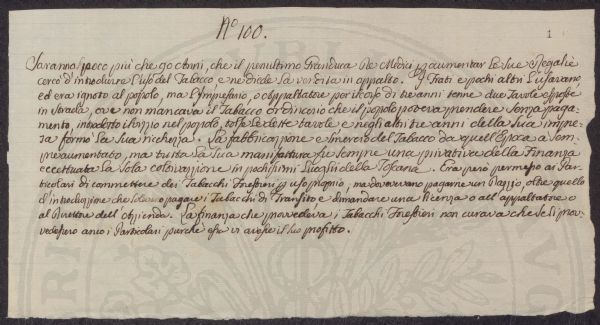 N.° 100.
1
Saranno poco più che 90 anni, che il penultimo Granduca De Medici p aumentar le sue Regalie
cercò d'introdurre l'uso del Tabacco e ne diede la vendita in appalto. I Frati e pochi altri l'usavano,
ed era ignoto al popolo, ma l'Impresario, o Appaltatore per il corso di tre anni tenne due Tavole esposte
in strada, ove non mancava il Tabacco ordinario che il popolo poteva prendere senza paga-
mento, introdotto il vizio nel popolo, tolse le dette tavole e negli altri tre anni della sua impre-
sa formò la sua ricchezza. La fabbricazione e smercio del Tabacco da quell'Epoca a sem-
pre aumentato, ma tutta la sua manifattura fu sempre una privativa della Finanza
eccettuata la sola coltivazione in pochissimi Luoghi della Toscana. Era però permesso ai Par-
ticolari di commettere dei Tabacchi Forestieri p uso proprio, ma dovevano pagarne un Dazio, oltre quello
d'introduzione che solevano pagare i Tabacchi di Transito e dimandare una licenza o all'appaltatore o
al Direttore dell'Azienda. La finanza che provvedeva i Tabacchi Forestieri non curava che se li prov-
vedessero anco i Particolari purchè essa vi avesse il suo profitto.